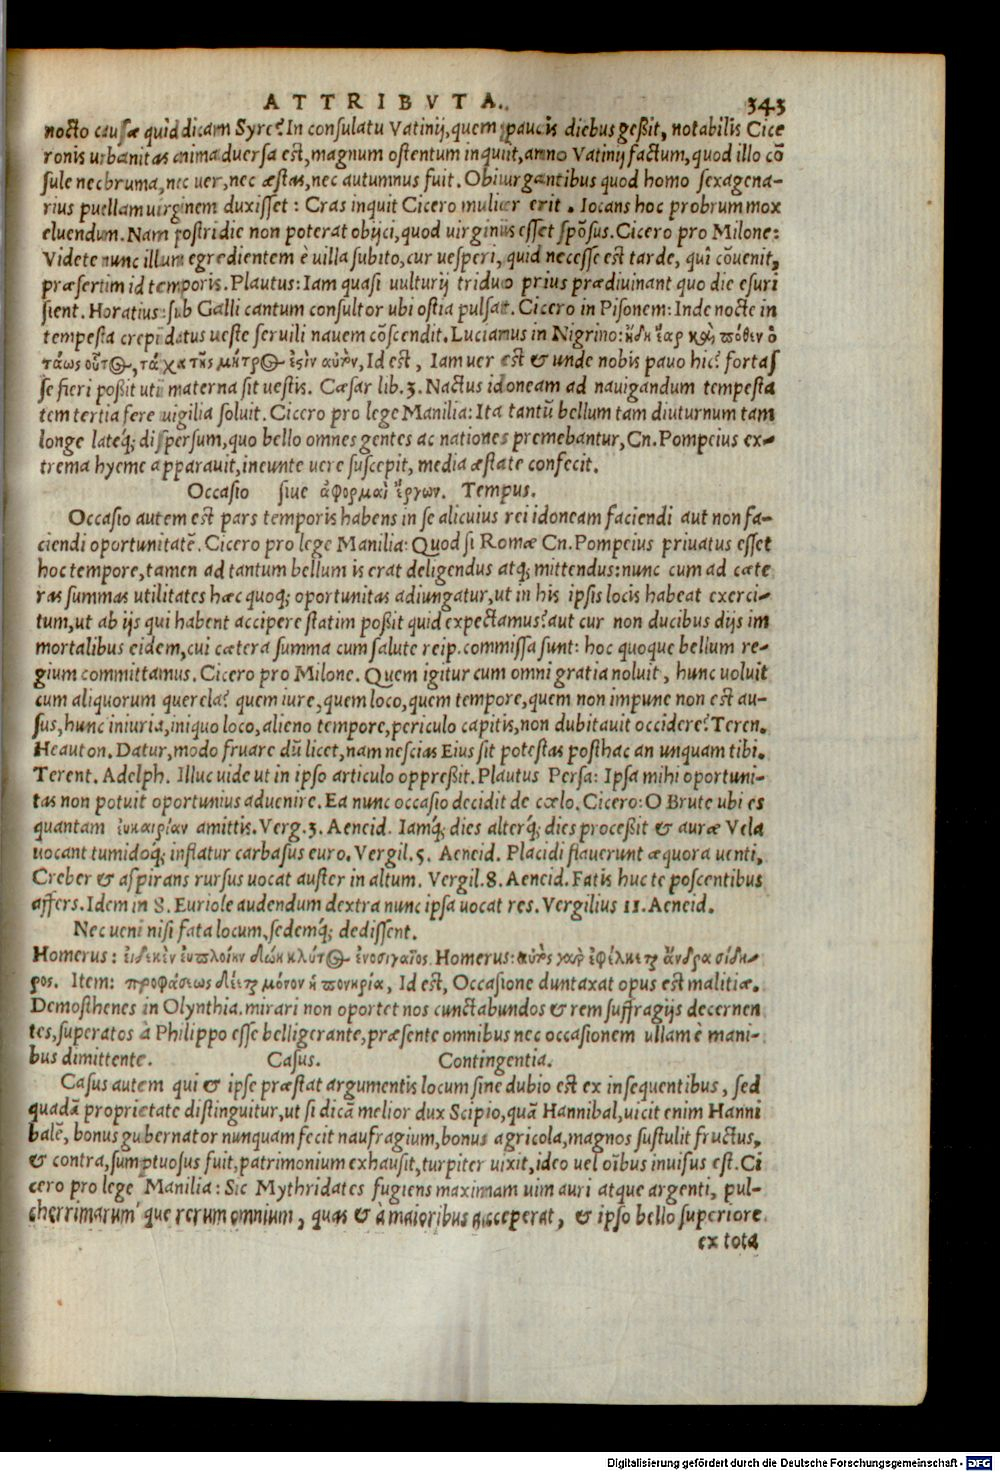 ATTRIBVTA. 343
nocto causæ quid dicam Syre? In consulatu Vatinij, quem paucis diebus geßit, notabilis Cice
ronis urbanitas animaduersa est, magnum ostentum inquiit, anno Vatinij factum, quod illo cõ
sule nec bruma, nec uer, nec æstas, nec autumnus fuit. Obiurgantibus quod homo sexagena-
rius puellam uirginem duxisset: Cras inquit Cicero mulier erit. Iocans hoc probrum mox
eluendum. Nam postridie non poterat obijci, quod uirginis esset spõsus. Cicero pro Milone:
Videte nunc illum egredientem è uilla subito, cur uesperi, quid necesse est tarde, quî cõuenit,
præsertim id temporis. Plautus: Iam quasi uulturij triduo prius prædiuinant quo die esuri
sient. Horatius: sub Galli cantum consultor ubi ostia pulsat. Cicero in Pisonem: Inde nocte in
tempesta crepidatus ueste seruili nauem cõscendit. Lucianus in Nigrino: ἤδη ἔαρ καὶ πόθεν ὁ
ταὼς οὗτος, τάχα τῆς μητρὸς ἐςὶν αὐτοῦ, Id est, Iam uer est & unde nobis pauo hic? fortas
se fieri poßit uti materna sit uestis. Cæsar lib. 3. Nactus idoneam ad nauigandum tempesta
tem tertia fere uigilia soluit. Cicero pro lege Manilia: Ita tantũ bellum tam diuturnum tam
longe lateq; dispersum, quo bello omnes gentes ac nationes premebantur, Cn. Pompeius ex-
trema hyeme apparauit, ineunte uere suscepit, media æstate confecit.
Occasio siue ἀφορμαὶ ἔργων. Tempus.
Occasio autem est pars temporis habens in se alicuius rei idoneam faciendi aut non fa-
ciendi oportunitatẽ. Cicero pro lege Manilia: Quod si Romæ Cn. Pompeius priuatus esset
hoc tempore, tamen ad tantum bellum is erat deligendus atq; mittendus: nunc cum ad cæte
ras summas utilitates hæc quoq; oportunitas adiungatur, ut in his ipsis locis habeat exerci-
tum, ut ab ijs qui habent accipere statim poßit quid expectamus? aut cur non ducibus dijs im
mortalibus eidem, cui cætera summa cum salute reip. commissa sunt: hoc quoque bellum re-
gium committamus. Cicero pro Milone. Quem igitur cum omni gratia noluit, hunc uoluit
cum aliquorum querela? quem iure, quem loco, quem tempore, quem non impune non est au-
sus, hunc iniuria, iniquo loco, alieno tempore, periculo capitis, non dubitauit occidere? Teren.
Heauton. Datur, modo fruare dũ licet, nam nescias Eius sit potestas posthac an unquam tibi.
Terent. Adelph. Illuc uide ut in ipso articulo oppreßit. Plautus Persa: Ipsa mihi oportuni-
tas non potuit oportunius aduenire. Ea nunc occasio decidit de cœlo. Cicero: O Brute ubi es
quantam ἐυκαιρίαν amittis. Verg. 3. Aeneid. Iamq; dies alterq; dies proceßit & auræ Vela
uocant tumidoq; inflatur carbasus euro. Vergil. 5. Aeneid. Placidi flauerunt æquora uenti,
Creber & aspirans rursus uocat auster in altum. Vergil. 8. Aeneid. Fatis huc te poscentibus
affers. Idem in 8. Euriole audendum dextra nunc ipsa uocat res. Vergilius 11. Aeneid.
Nec ueni nisi fata locum, sedemq; dedissent.
Homerus: κλυτὸς ἐνοσίγαιος. Homerus: αὐτὸς γὰρ ἐφέλκεται ἄνδρα σίδη-
ρος. Item: προφάσεως δεῖται μόνον ἡ πονηρία, Id est, Occasione duntaxat opus est malitiæ.
Demosthenes in Olynthia. mirari non oportet nos cunctabundos & rem suffragijs decernen
tes, superatos à Philippo esse belligerante, præsente omnibus nec occasionem ullam è mani-
bus dimittente. Casus. Contingentia.
Casus autem qui & ipse præstat argumentis locum sine dubio est ex insequentibus, sed
quadã proprietate distinguitur, ut si dicã melior dux Scipio, quã Hannibal, uicit enim Hanni
balẽ, bonus gubernator nunquam fecit naufragium, bonus agricola, magnos sustulit fructus,
& contra, sumptuosus fuit, patrimonium exhausit, turpiter uixit, ideo uel oĩbus inuisus est. Ci
cero pro lege Manilia: Sic Mythridates fugiens maximam uim auri atque argenti, pul-
cherrimarum que rerum omnium, quas & à maioribus acceperat, & ipso bello superiore
ex tota
Digitalisierung gefördert durch die Deutsche Forschungsgemeinschaft - DFG